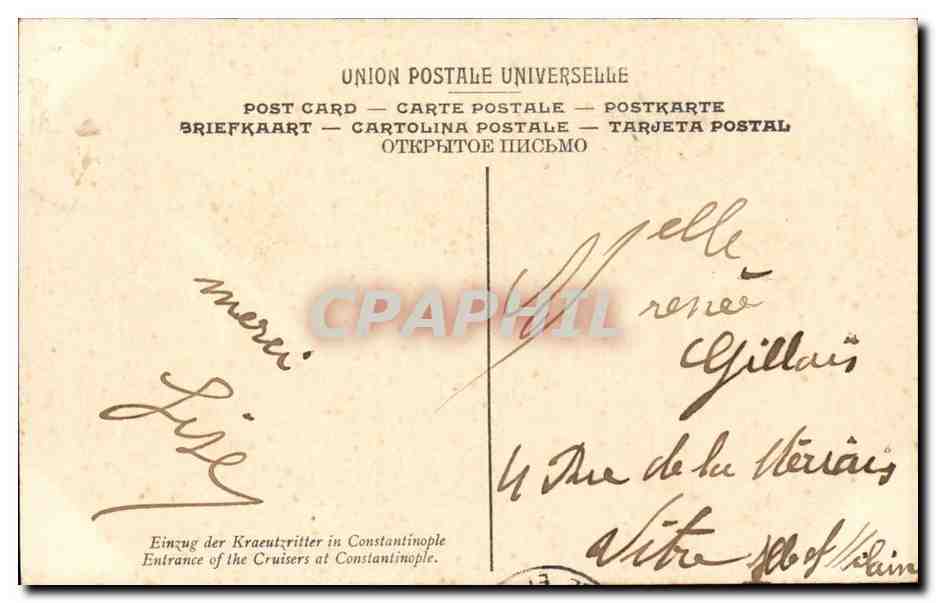 UNION POSTALE UNIVERSELLE
POST CARD — CARTE POSTALE — POSTKARTE
BRIEFKAART — CARTOLINA POSTALE — TARJETA POSTAL
ОТКРЫТОЕ ПИСЬМО
merci
Lise
Einzug der Kraeutzritter in Constantinople
Entrance of the Cruisers at Constantinople.
Melle
renée
Gillais
4 Rue de la
Vitre Ille et Vilaine
CPAPHIL